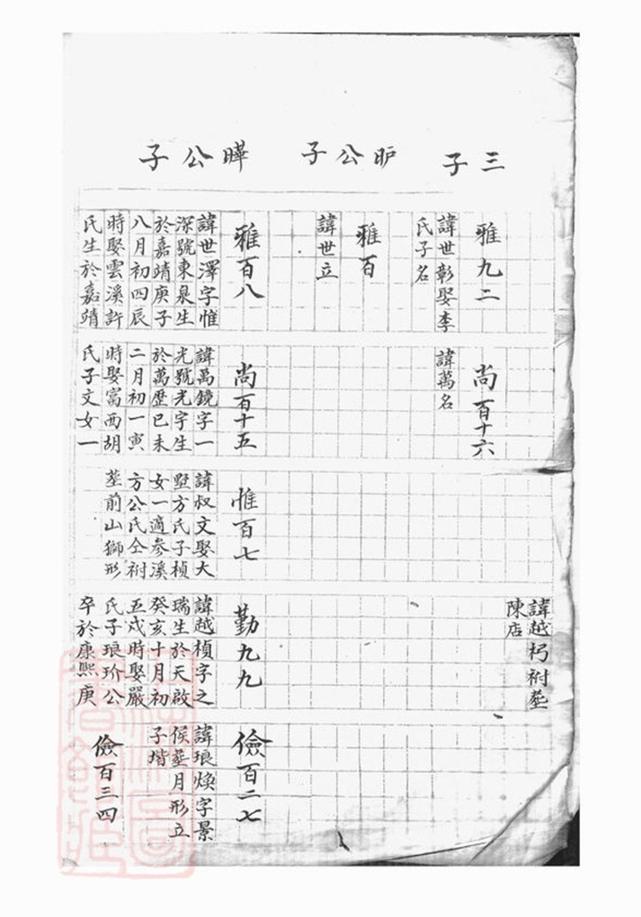 三子
昈公子
曄公子
雅九二
諱世彰娶李
氏子名
雅百
諱世立
雅百八
諱世澤字惟
深號東泉生
於嘉靖庚子
八月初四辰
時娶雲溪許
氏生於嘉靖
尚百十六
諱萬名
尚百十五
諱萬鏡字一
光號光宇生
於萬歷己未
二月初一寅
時娶富西胡
氏子文女一
惟百七
諱叔文娶大
墅方氏子楨
女一適參溪
方公氏仝祔
塟前山獅形
諱越杇祔塟
陳店
勤九九
諱越楨字之
瑞生於天啟
癸亥十月初
五戍時娶嚴
氏子琅玠公
卒於康熙庚
儉百二七
諱琅煥字景
侯塟月形立
子堦
儉百三四